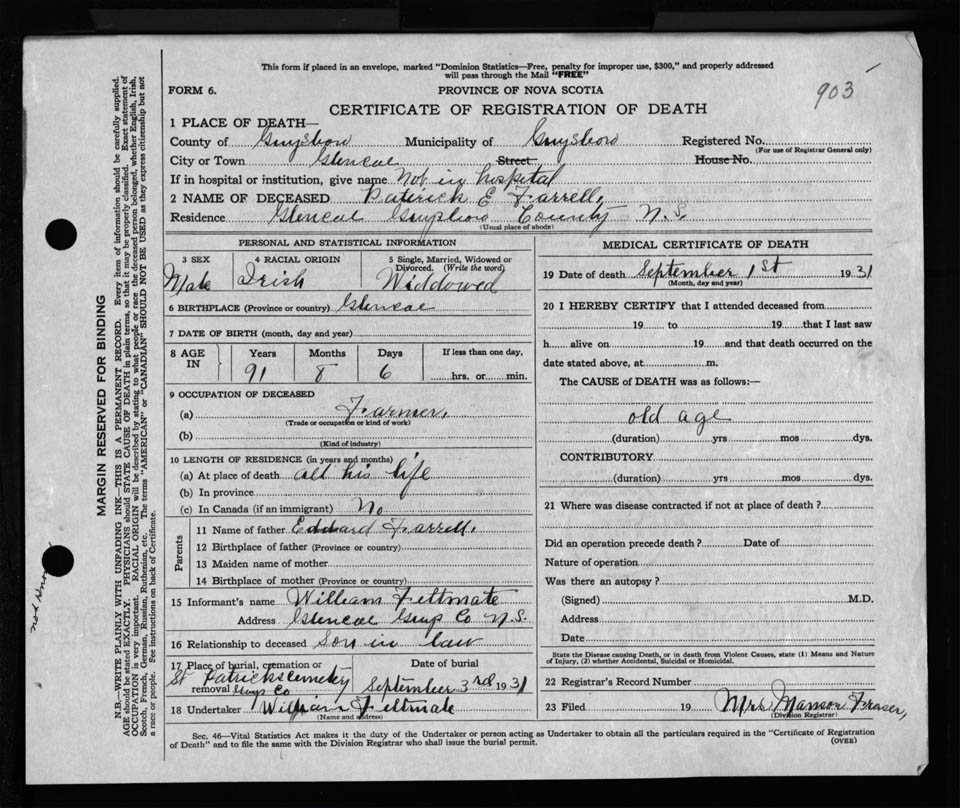 This form if placed in an envelope, marked "Dominion Statistics—Free, penalty for improper use, $300," and properly addressed
will pass through the Mail "FREE"
903
FORM 6. PROVINCE OF NOVA SCOTIA
CERTIFICATE OF REGISTRATION OF DEATH
1 PLACE OF DEATH—
County of Guysboro Municipality of Guysboro Registered No.
(For use of Registrar General only)
City or Town Glencoe Street House No.
If in hospital or institution, give name Not in hospital
2 NAME OF DECEASED Patirick E Farrell,
Residence Glencoe Guysboro County N.S.
(Usual place of abode)
PERSONAL AND STATISTICAL INFORMATION
3 SEX 4 RACIAL ORIGIN 5 Single, Married, Widowed or
Divorced. (Write the word)
Male Irish Widdowed
6 BIRTHPLACE (Province or country) Glencoe
7 DATE OF BIRTH (month, day and year)
8 AGE IN Years Months Days If less than one day,
91 8 6 hrs. or min.
9 OCCUPATION OF DECEASED
(a) Farmer,
(Trade or occupation or kind of work)
(b)
(Kind of industry)
10 LENGTH OF RESIDENCE (in years and months)
(a) At place of death all his life
(b) In province
(c) In Canada (if an immigrant) No
Parents
11 Name of father Edward Farrell,
12 Birthplace of father (Province or country)
13 Maiden name of mother
14 Birthplace of mother (Province or country)
15 Informant's name William Feltmate
Address Glencoe Guys Co N.S.
16 Relationship to deceased Son in law
17 Place of burial, cremation or Date of burial
St Patricks cemetery
removal Guys Co September 3rd 1931
18 Undertaker William Feltmate
(Name and address)
MEDICAL CERTIFICATE OF DEATH
19 Date of death September 1st 1931
(Month, day and year)
20 I HEREBY CERTIFY that I attended deceased from
19 to 19 that I last saw
h alive on 19 and that death occurred on the
date stated above, at m.
The CAUSE of DEATH was as follows:—
old age
(duration) yrs mos dys.
CONTRIBUTORY
(duration) yrs mos dys.
21 Where was disease contracted if not at place of death?
Did an operation precede death? Date of
Nature of operation
Was there an autopsy?
(Signed) M.D.
Address
Date
State the Disease causing Death, or in death from Violent Causes, state (1) Means and Nature
of Injury, (2) whether Accidental, Suicidal or Homicidal.
22 Registrar's Record Number
23 Filed 19 Mrs Manson Fraser,
(Division Registrar)
Sec. 46—Vital Statistics Act makes it the duty of the Undertaker or person acting as Undertaker to obtain all the particulars required in the "Certificate of Registration
of Death" and to file the same with the Division Registrar who shall issue the burial permit.
(OVER)
MARGIN RESERVED FOR BINDING
N.B.—WRITE PLAINLY WITH UNFADING INK—THIS IS A PERMANENT RECORD. Every item of information should be carefully supplied.
AGE should be stated EXACTLY. PHYSICIANS should STATE CAUSE OF DEATH in plain terms, so that it may be properly classified. Exact statement of
OCCUPATION is very important. RACIAL ORIGIN will be described by stating to what people or race the deceased person belonged, whether English, Irish,
Scotch, French, German, Russian, Ruthenian, etc. The terms "AMERICAN" or "CANADIAN" SHOULD NOT BE USED as they express citizenship but not
a race or people. See instructions on back of Certificate.